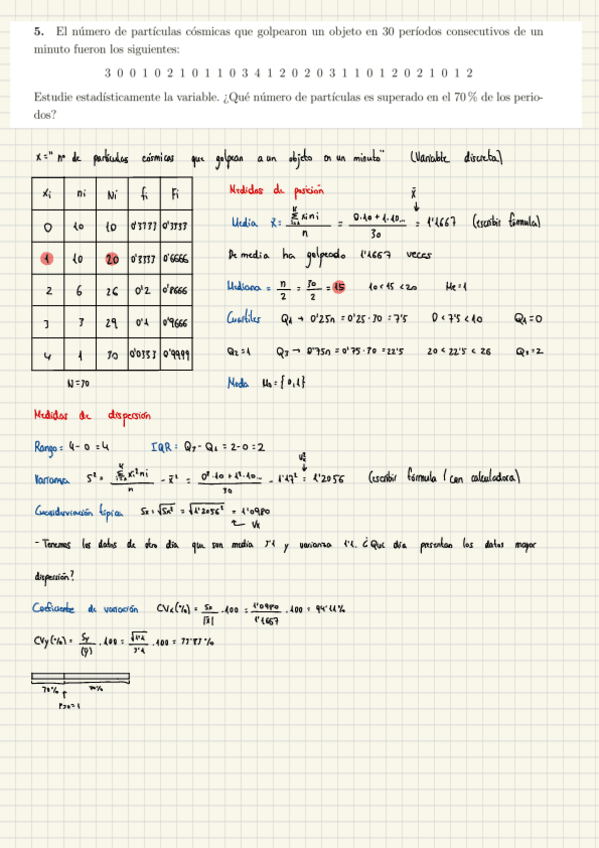 5. El número de partículas cósmicas que golpearon un objeto en 30 períodos consecutivos de un
minuto fueron los siguientes:
3 0 0 1 0 2 1 0 1 1 0 3 4 1 2 0 2 0 3 1 1 0 1 2 0 2 1 0 1 2
Estudie estadísticamente la variable. ¿Qué número de partículas es superado en el 70 % de los perio-
dos?
x = "nº de partículas cósmicas que golpean a un objeto en un minuto" (Variable discreta)
xi ni Ni fi Fi
0 10 10 0'3333 0'3333
1 10 20 0'3333 0'6666
2 6 26 0'2 0'8666
3 3 29 0'1 0'9666
4 1 30 0'0333 0'9999
N=30
Medidas de posición
x̄
↓
Media x̄ = Σ xi ni / n = 0·10 + 1·10... / 30 = 1'1667 (escribir fórmula)
De media ha golpeado 1'1667 veces
Mediana = n/2 = 30/2 = 15 10<15<20 Me=1
Cuartiles Q1 → 0'25n = 0'25·30 = 7'5 0<7'5<10 Q1=0
Q2=1 Q3 → 0'75n = 0'75·30 = 22'5 20<22'5<26 Q3=2
Moda Mo = {0,1}
Medidas de dispersión
Rango = 4-0 = 4 IQR = Q3 - Q1 = 2-0 = 2
Varianza S² = Σ xi² ni / n - x̄² = 0²·10 + 1²·10... / 30 - 1'17² = 1'2056 (escribir fórmula / con calculadora)
Cuasidesviación típica Sx = √Sx² = √1'2056² = 1'0980
- Tenemos los datos de otro día que son media 3'1 y varianza 1'1. ¿Qué día presentan los datos mayor
dispersión?
Coeficiente de variación CVx(%) = Sx/|x̄| · 100 = 1'0980/1'1667 · 100 = 94'11%
CVy(%) = Sy/|ȳ| · 100 = √1'1/3'1 · 100 = 33'83%
70%
P30=1